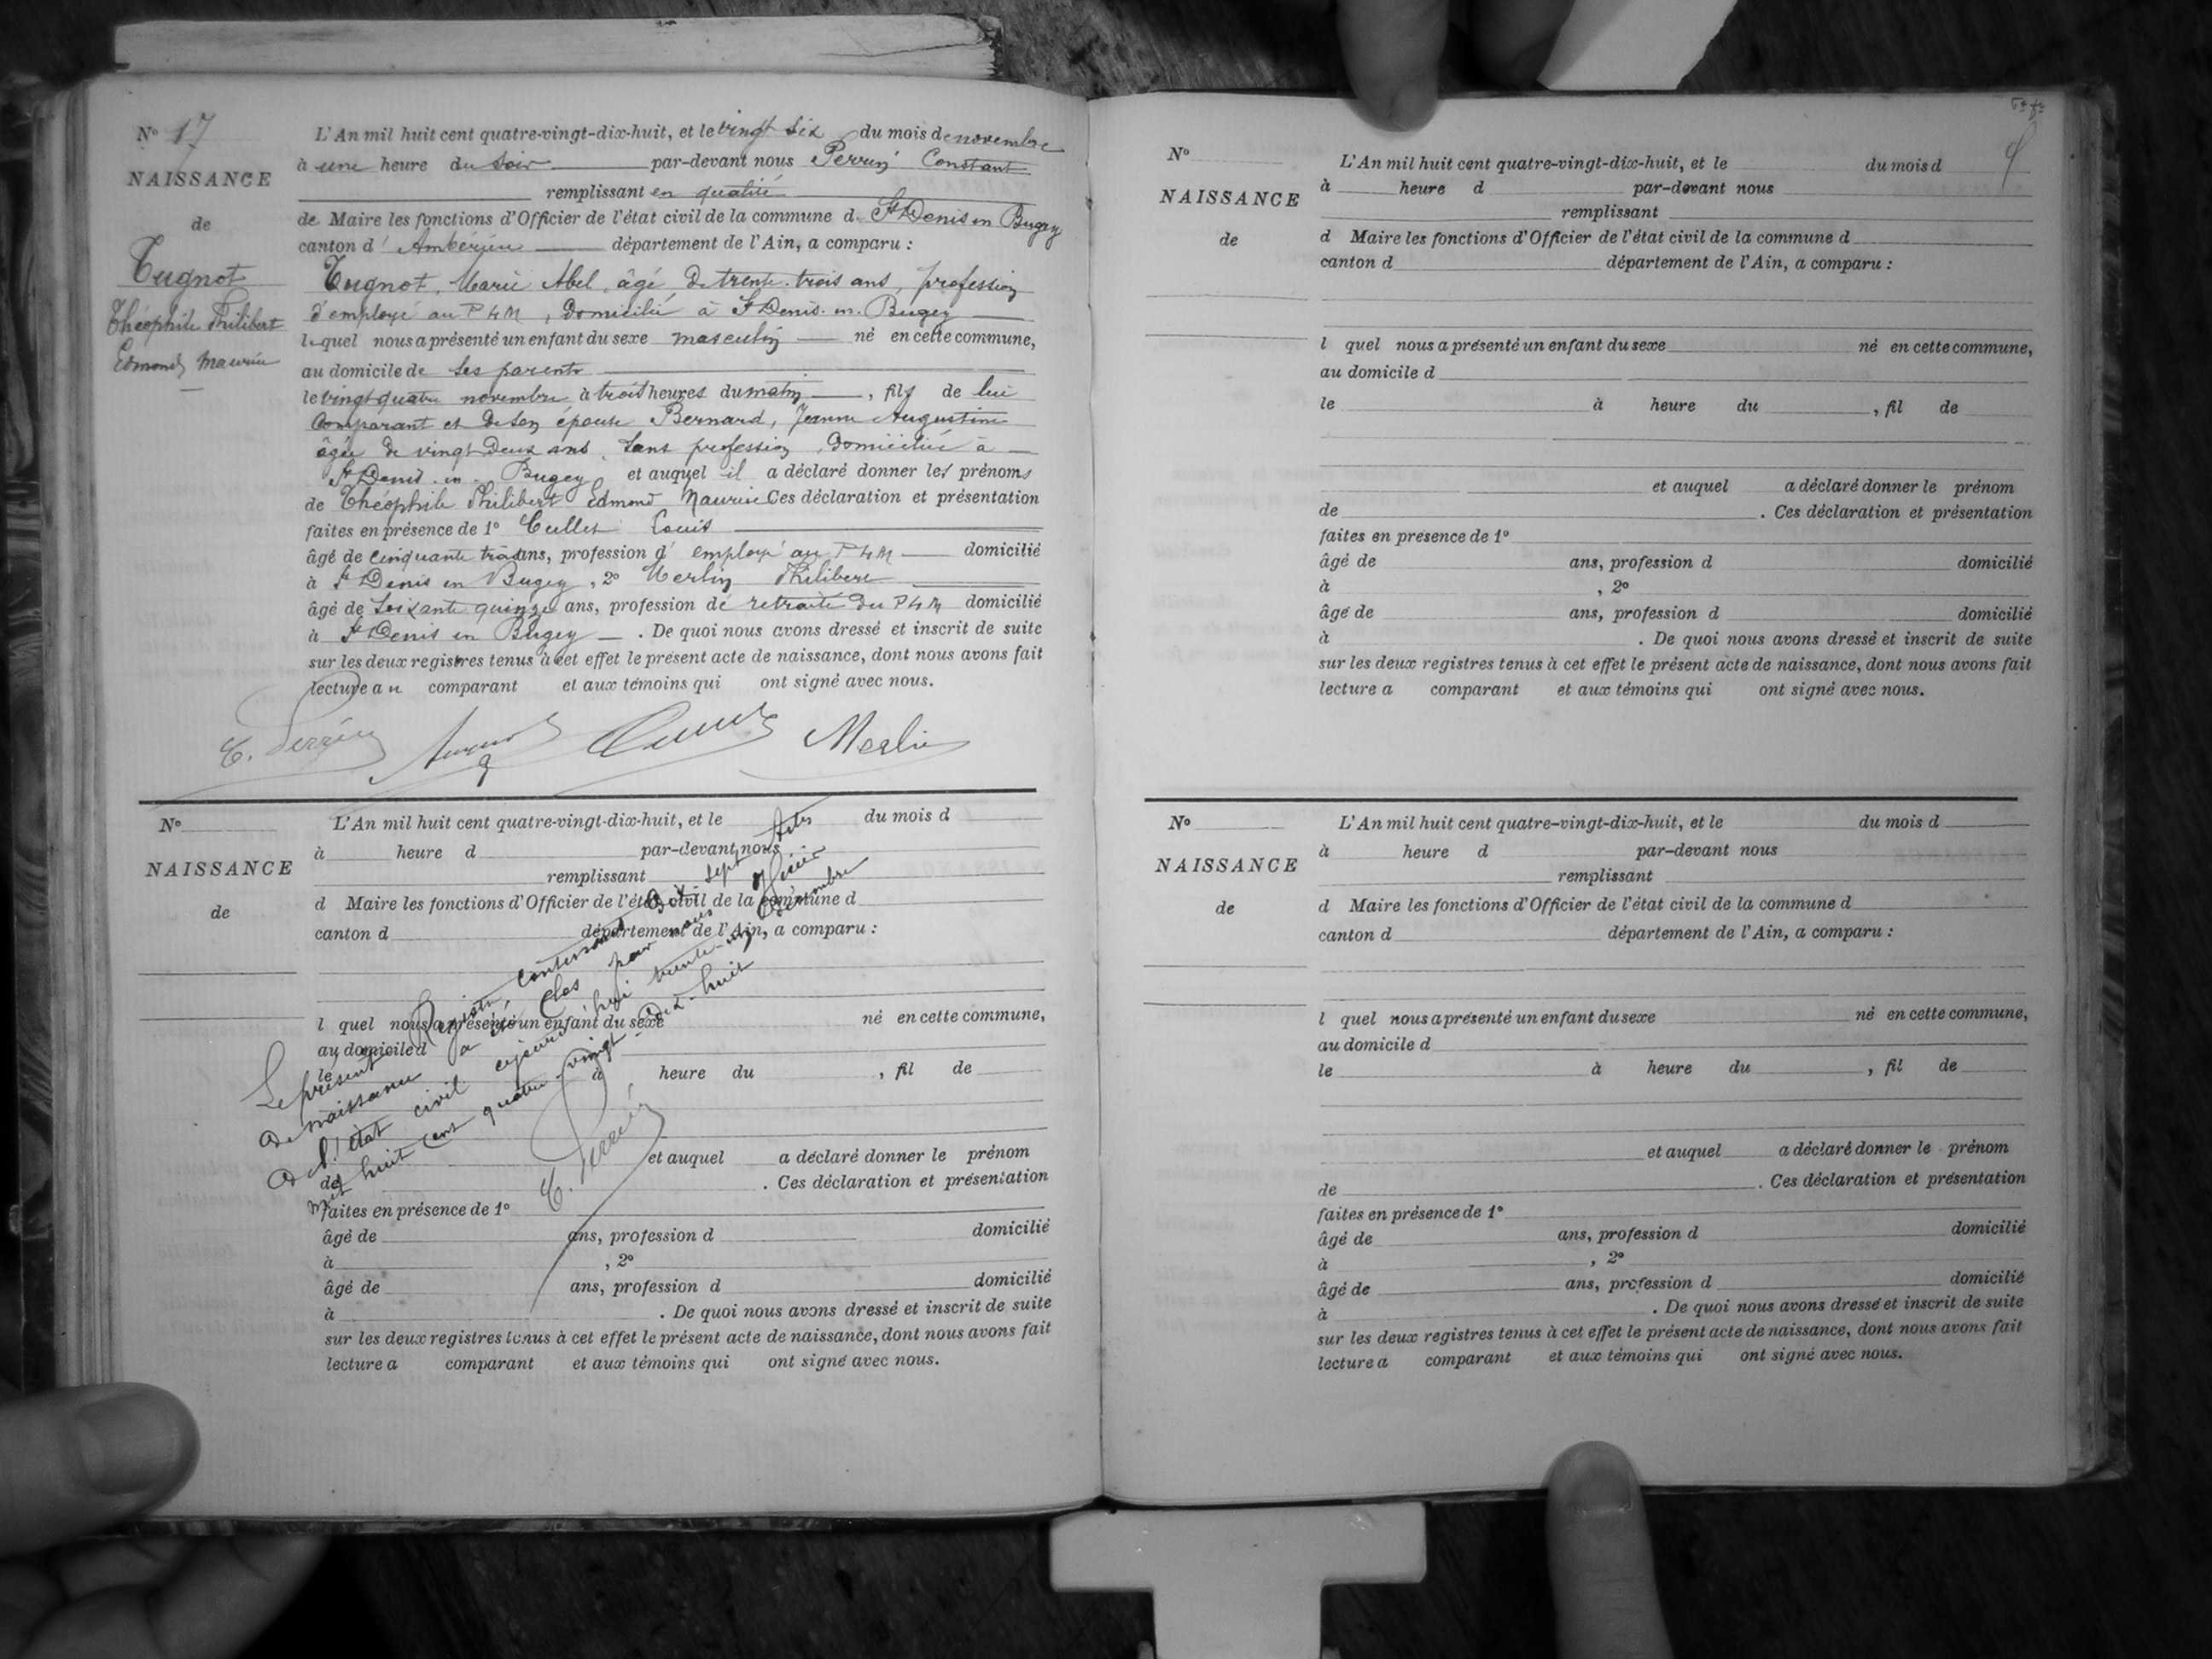 N° 17
NAISSANCE
de
Tugnot
Théophile Philibert
Edmond Maurice
L'An mil huit cent quatre-vingt-dix-huit, et le vingt six du mois de novembre
à une heure du soir par-devant nous Perrin Constant
remplissant en qualité
de Maire les fonctions d'Officier de l'état civil de la commune d. St Denis en Bugey
canton d' Ambérieu département de l'Ain, a comparu :
Tugnot, Marie Abel, âgé de trente-trois ans, profession
d'employé au PLM, domicilié à St Denis-en-Bugey
lequel nous a présenté un enfant du sexe masculin né en cette commune,
au domicile de ses parents
le vingt quatre novembre à trois heures du matin, fils de lui
comparant et de son épouse Bernard, Jeanne Augustine
âgée de vingt deux ans, sans profession, domiciliée à
St Denis-en-Bugey et auquel il a déclaré donner les prénoms
de Théophile Philibert Edmond Maurice Ces déclaration et présentation
faites en présence de 1° Louis
âgé de cinquante trois ans, profession d' employé au PLM domicilié
à St Denis en Bugey, 2° Merlin Philibert
âgé de soixante quinze ans, profession de retraité du PLM domicilié
à St Denis en Bugey. De quoi nous avons dressé et inscrit de suite
sur les deux registres tenus à cet effet le présent acte de naissance, dont nous avons fait
lecture au comparant et aux témoins qui ont signé avec nous.
C. Perrin Merlin
N°
NAISSANCE
de
L'An mil huit cent quatre-vingt-dix-huit, et le du mois d
à heure d par-devant nous
remplissant
d Maire les fonctions d'Officier de l'état civil de la commune d
canton d département de l'Ain, a comparu :
l quel nous a présenté un enfant du sexe né en cette commune,
au domicile d
le à heure du , fil de
et auquel a déclaré donner le prénom
de . Ces déclaration et présentation
faites en présence de 1°
âgé de ans, profession d domicilié
à , 2°
âgé de ans, profession d domicilié
à . De quoi nous avons dressé et inscrit de suite
sur les deux registres tenus à cet effet le présent acte de naissance, dont nous avons fait
lecture a comparant et aux témoins qui ont signé avec nous.
Le présent Registre contenant dix sept actes
de naissance a été clos par nous officier
de l'état civil cejourd'hui trente-un décembre
mil huit cent quatre-vingt-dix-huit
C. Perrin
N°
NAISSANCE
de
L'An mil huit cent quatre-vingt-dix-huit, et le du mois d
à heure d par-devant nous
remplissant
d Maire les fonctions d'Officier de l'état civil de la commune d
canton d département de l'Ain, a comparu :
l quel nous a présenté un enfant du sexe né en cette commune,
au domicile d
le à heure du , fil de
et auquel a déclaré donner le prénom
de . Ces déclaration et présentation
faites en présence de 1°
âgé de ans, profession d domicilié
à , 2°
âgé de ans, profession d domicilié
à . De quoi nous avons dressé et inscrit de suite
sur les deux registres tenus à cet effet le présent acte de naissance, dont nous avons fait
lecture a comparant et aux témoins qui ont signé avec nous.
N°
NAISSANCE
de
L'An mil huit cent quatre-vingt-dix-huit, et le du mois d
à heure d par-devant nous
remplissant
d Maire les fonctions d'Officier de l'état civil de la commune d
canton d département de l'Ain, a comparu :
l quel nous a présenté un enfant du sexe né en cette commune,
au domicile d
le à heure du , fil de
et auquel a déclaré donner le prénom
de . Ces déclaration et présentation
faites en présence de 1°
âgé de ans, profession d domicilié
à , 2°
âgé de ans, profession d domicilié
à . De quoi nous avons dressé et inscrit de suite
sur les deux registres tenus à cet effet le présent acte de naissance, dont nous avons fait
lecture a comparant et aux témoins qui ont signé avec nous.